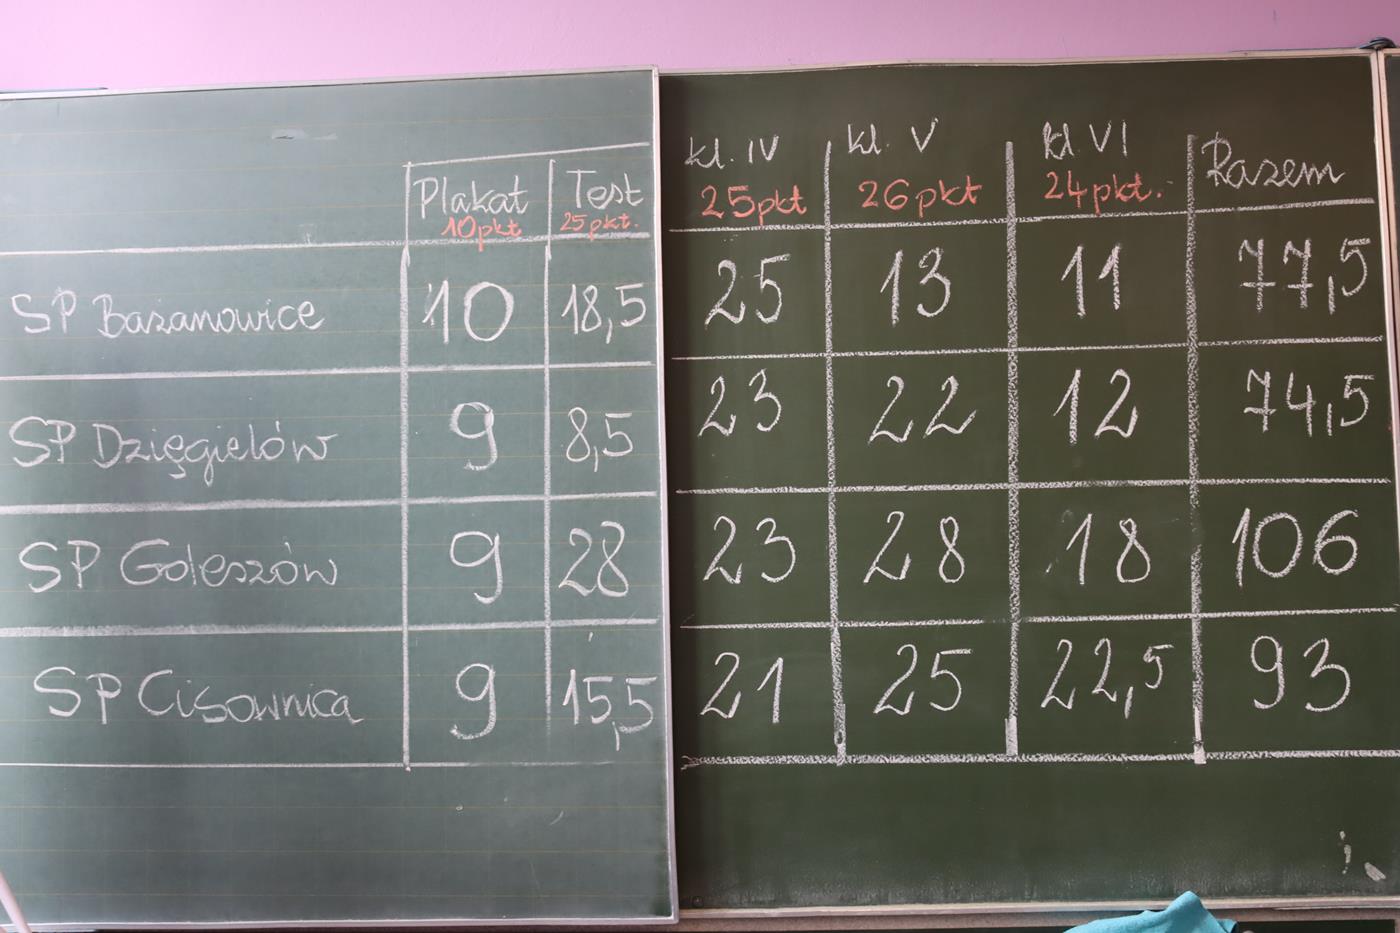 Plakat Test kl. IV kl. V kl VI Razem
10pkt 25pkt. 25pkt 26pkt 24pkt.
SP Bażanowice 10 18,5 25 13 11 77,5
SP Dzięgielów 9 8,5 23 22 12 74,5
SP Goleszów 9 28 23 28 18 106
SP Cisownica 9 15,5 21 25 22,5 93